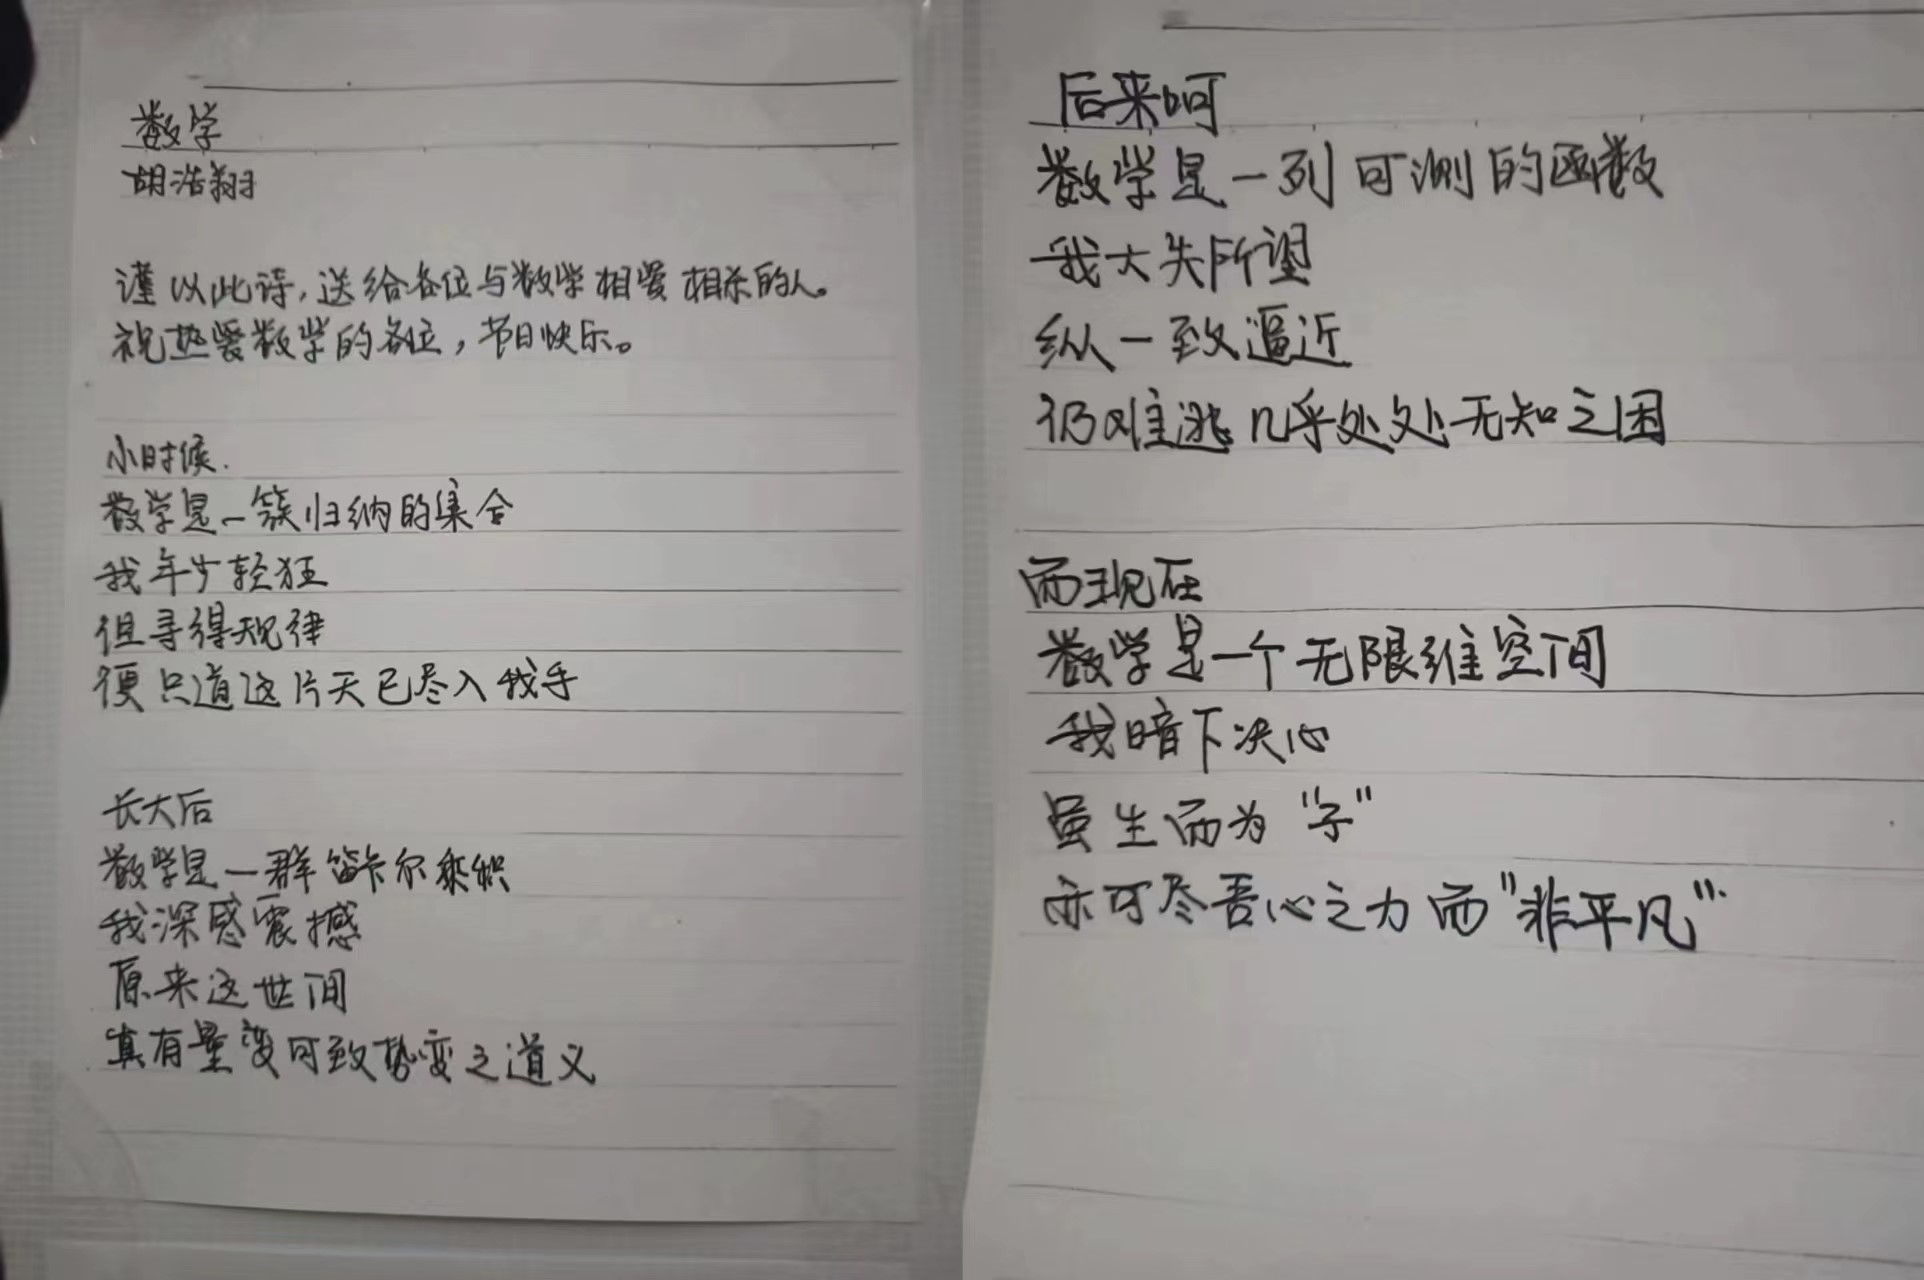 数学
胡浩翔
谨以此诗，送给各位与数学相爱相杀的人。
祝热爱数学的各位，节日快乐。
小时候.
数学是一簇归纳的集合
我年少轻狂
但寻得规律
便只道这片天已尽入我手
长大后
数学是一群笛卡尔乘积
我深感震撼
原来这世间
真有量变可致势变之道义
后来呵
数学是一列可测的函数
我大失所望
纵一致逼近
仍难逃几乎处处无知之困
而现在
数学是一个无限维空间
我暗下决心
虽生而为“子”
亦可尽吾心之力而“非平凡”